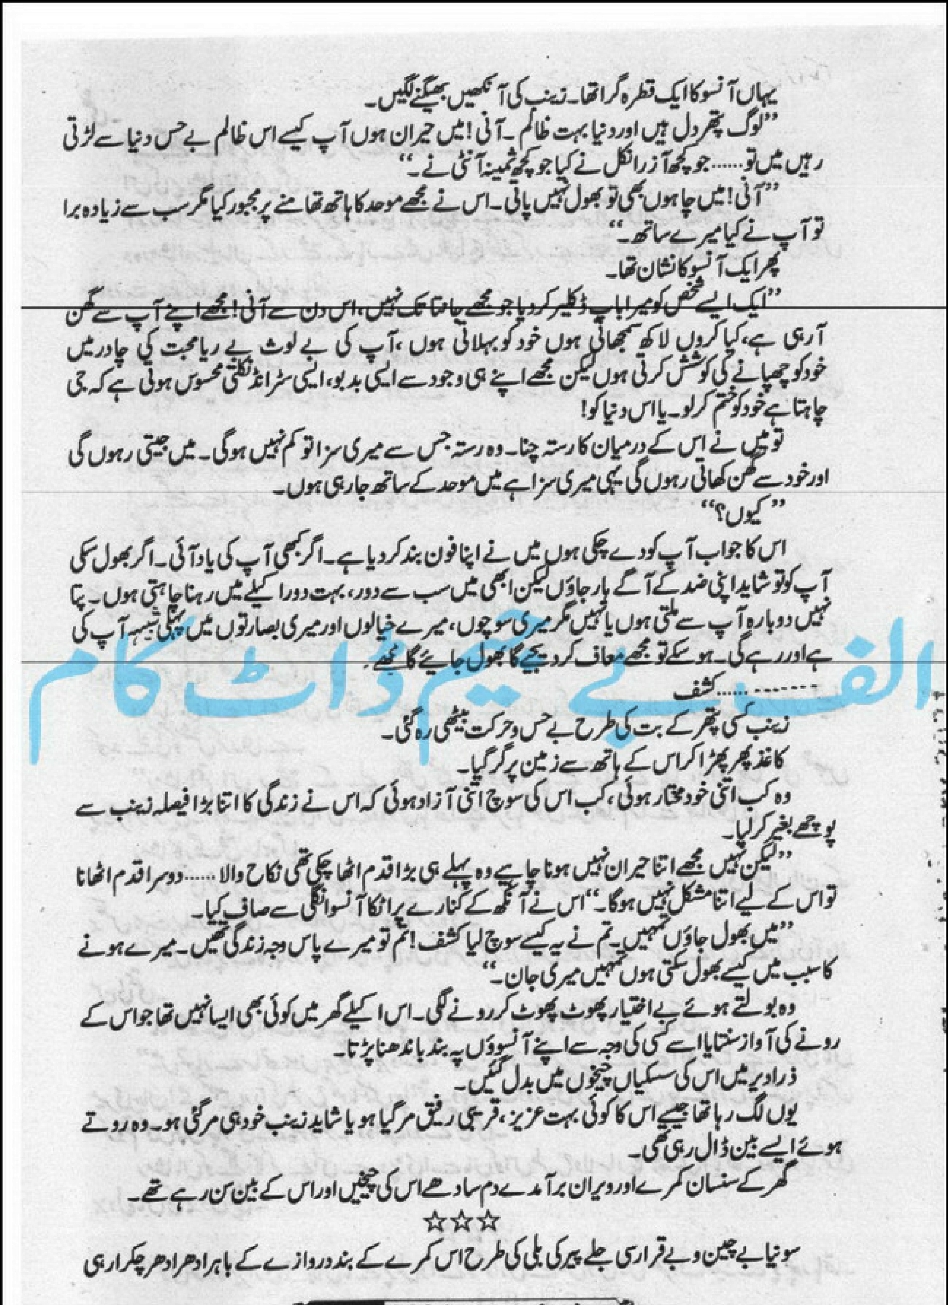 یہاں آنسو کا ایک قطرہ گرا تھا۔ زینب کی آنکھیں بھیگنے لگیں۔
”لوگ پتھر دل ہیں اور دنیا بہت ظالم۔ آنی! میں حیران ہوں آپ کیسے اس ظالم بے حس دنیا سے لڑتی
رہیں میں تو...... جو کچھ آزر انکل نے کیا جو کچھ ثمینہ آنٹی نے۔“
”آنی! میں چاہوں بھی تو بھول نہیں پاتی۔ اس نے مجھے موحد کا ہاتھ تھامنے پر مجبور کیا مگر سب سے زیادہ برا
تو آپ نے کیا میرے ساتھ۔“
پھر ایک آنسو کا نشان تھا۔
”ایک ایسے شخص کو میرا باپ ڈکلیئر کر دیا جو مجھے جانتا تک نہیں، اس دن سے آنی! مجھے اپنے آپ سے گھن
آ رہی ہے، کیا کروں لاکھ سمجھاتی ہوں خود کو بہلاتی ہوں، آپ کی بے لوث بے ریا محبت کی چادر میں
خود کو چھپانے کی کوشش کرتی ہوں لیکن مجھے اپنے ہی وجود سے ایسی بدبو، ایسی سڑانڈ نکلتی محسوس ہوتی ہے کہ جی
چاہتا ہے خود کو ختم کر لو۔ یا اس دنیا کو!
تو میں نے اس کے درمیان کا رستہ چنا۔ وہ رستہ جس سے میری سزا تو کم نہیں ہوگی۔ میں جیتی رہوں گی
اور خود سے گھن کھاتی رہوں گی یہی میری سزا ہے میں موحد کے ساتھ جا رہی ہوں۔
”کیوں؟“
اس کا جواب آپ کو دے چکی ہوں میں نے اپنا فون بند کر دیا ہے۔ اگر کبھی آپ کی یاد آئی۔ اگر بھول سکی
آپ کو تو شاید اپنی ضد کے آگے ہار جاؤں لیکن ابھی میں سب سے دور، بہت دور اکیلے میں رہنا چاہتی ہوں۔ پتا
نہیں دوبارہ آپ سے ملتی ہوں یا نہیں مگر میری سوچوں، میرے خیالوں اور میری بصارتوں میں پہلی شبیہہ آپ کی
ہے اور رہے گی۔ ہو سکے تو مجھے معاف کر دیجیے گا بھول جائے گا مجھے۔
------- ......کشف
الف بے جیم ڈاٹ کام
زینب کسی پتھر کے بت کی طرح بے حس و حرکت بیٹھی رہ گئی۔
کاغذ پھر پھڑا کر اس کے ہاتھ سے زمین پر گر گیا۔
وہ کب اتنی خود مختار ہوئی، کب اس کی سوچ اتنی آزاد ہوئی کہ اس نے زندگی کا اتنا بڑا فیصلہ زینب سے
پوچھے بغیر کر لیا۔
”لیکن نہیں مجھے اتنا حیران نہیں ہونا چاہیے وہ پہلے ہی بڑا قدم اٹھا چکی تھی نکاح والا...... دوسرا قدم اٹھانا
تو اس کے لیے اتنا مشکل نہیں ہوگا۔“ اس نے آنکھ کے کنارے پر اٹکا آنسو انگلی سے صاف کیا۔
”میں بھول جاؤں تمہیں۔ تم نے یہ کیسے سوچ لیا کشف! تم تو میرے پاس وجہ زندگی تھیں۔ میرے ہونے
کا سبب میں کیسے بھول سکتی ہوں تمہیں میری جان۔“
وہ بولتے ہوئے بے اختیار پھوٹ پھوٹ کر رونے لگی۔ اس اکیلے گھر میں کوئی بھی ایسا نہیں تھا جو اس کے
رونے کی آواز سنتا یا اسے کسی کی وجہ سے اپنے آنسوؤں پہ بند باندھنا پڑتا۔
ذرا دیر میں اس کی سسکیاں چیخوں میں بدل گئیں۔
یوں لگ رہا تھا جیسے اس کا کوئی بہت عزیز، قریبی رفیق مر گیا ہو یا شاید زینب خود ہی مر گئی ہو۔ وہ روتے
ہوئے ایسے بین ڈال رہی تھی۔
گھر کے سنسان کمرے اور ویران برآمدے دم سادھے اس کی چیخیں اور اس کے بین سن رہے تھے۔
☆☆☆
سونیا بے چین و بے قرار سی جلے پیر کی بلی کی طرح اس کمرے کے بند دروازے کے باہر ادھر ادھر چکرا رہی